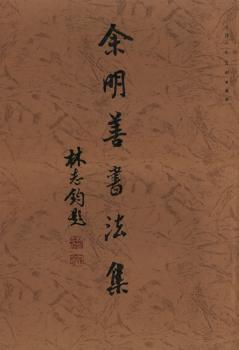 余明善書法集
林志鈞題